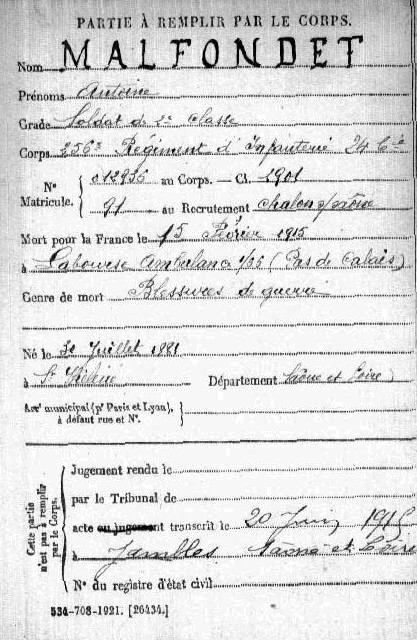 PARTIE À REMPLIR PAR LE CORPS.
Nom MALFONDET
Prénoms Antoine
Grade Soldat de 2e Classe
Corps 256e Régiment d'Infanterie 24 Cie
Nº Matricule. { 012936 au Corps. — Cl. 1901
91 au Recrutement Chalon s/ Saône
Mort pour la France le 15 Février 1915
à Labourse Ambulance (Pas de Calais)
Genre de mort Blessures de guerre
Né le 31 Juillet 1881
à St Hélène Département Saône et Loire
Arrt municipal (pr Paris et Lyon), à défaut rue et Nº.
Cette partie n'est pas à remplir par le Corps.
Jugement rendu le
par le Tribunal de
acte ou jugement transcrit le 20 Juin 1915
à Jambles Saône et Loire
Nº du registre d'état civil
534-708-1921. [26434.]